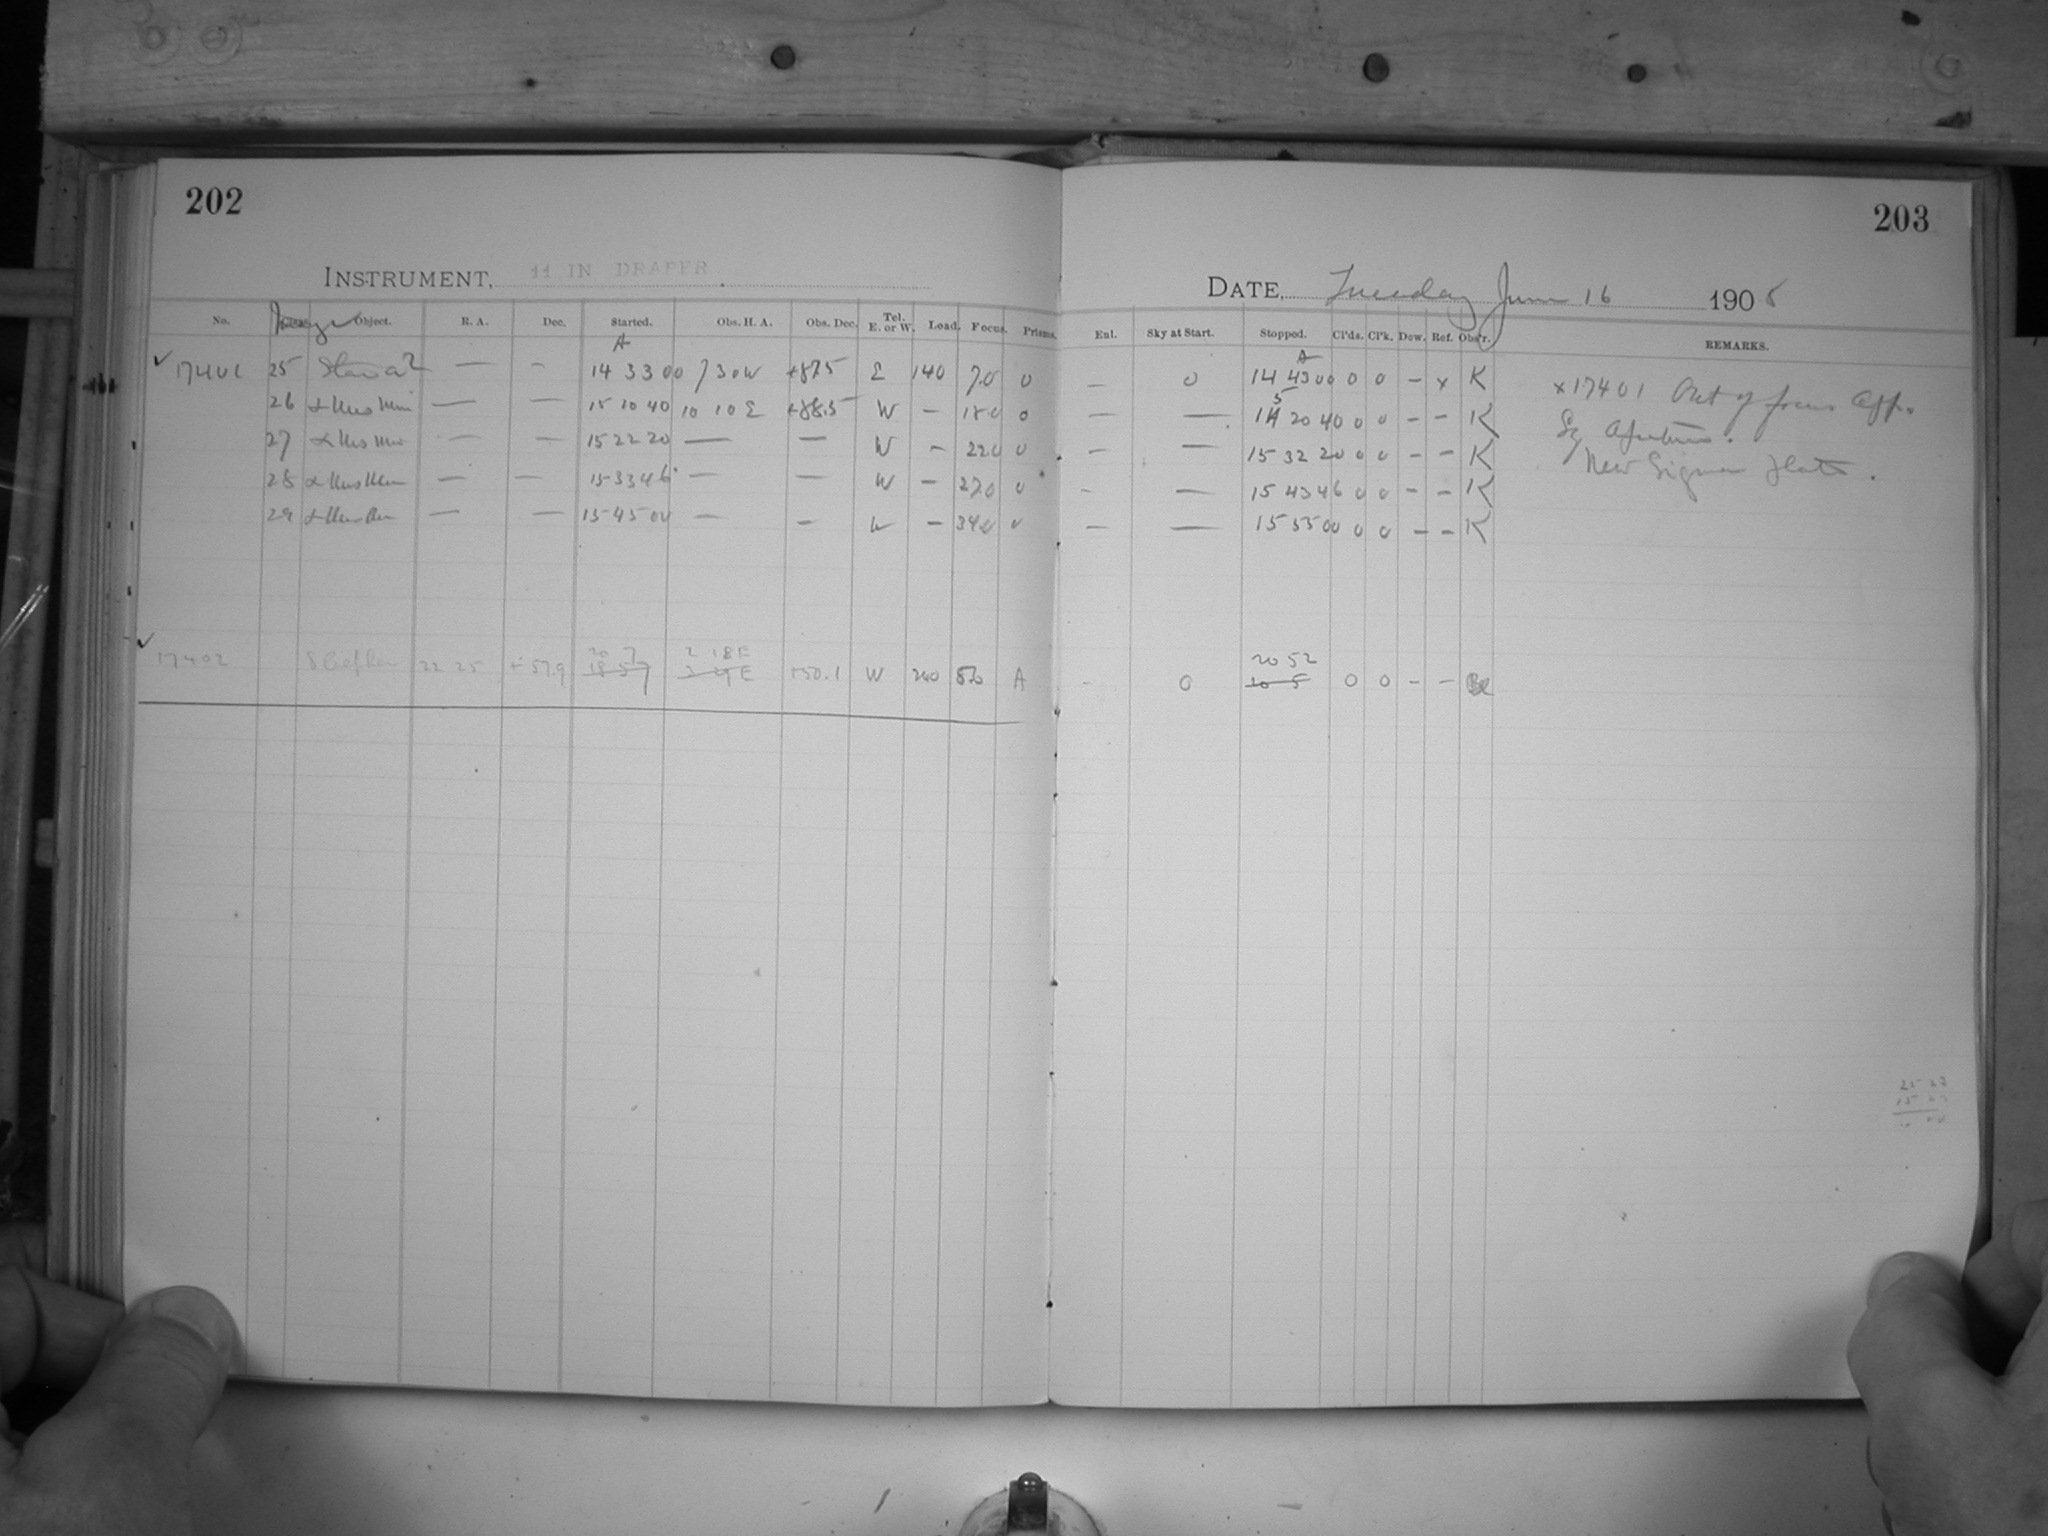 202
INSTRUMENT, 11 IN DRAPER
No. Image Object. R. A. Dec. Started. Obs. H. A. Obs. Dec. Tel. E. or W. Load. Focus. Prisms.
A
17401 25 — - 14 33 00 7 30 W +87.5 E 140 7.0 0
26 α Urs Min — — 15 10 40 10 10 E +88.5 W — 18.0 0
27 α Urs Min — — 15 22 20 — — W — 22.0 0
28 α Urs Min — — 15 33 46 — — W — 27.0 0
29 α Urs Min — — 15 45 00 — — W — 34.0 0
20 7 2 18 E
17402 22 25 +57.9 18 57 E +50.1 W 200 A
203
DATE, Tuesday June 16 1908
Enl. Sky at Start. Stopped. Cl'ds. Cl'k. Dew. Ref. Obs'r. REMARKS.
A
— 0 14 43 00 0 0 — x K x 17401 Out of focus App.
5
— — 14 20 40 0 0 — — K Sq Aperture.
— — 15 32 20 0 0 — — K New Sigma Plate.
- — 15 43 46 0 0 — — K
— — 15 55 00 0 0 — — K
20 52
- 0 0 0 - -